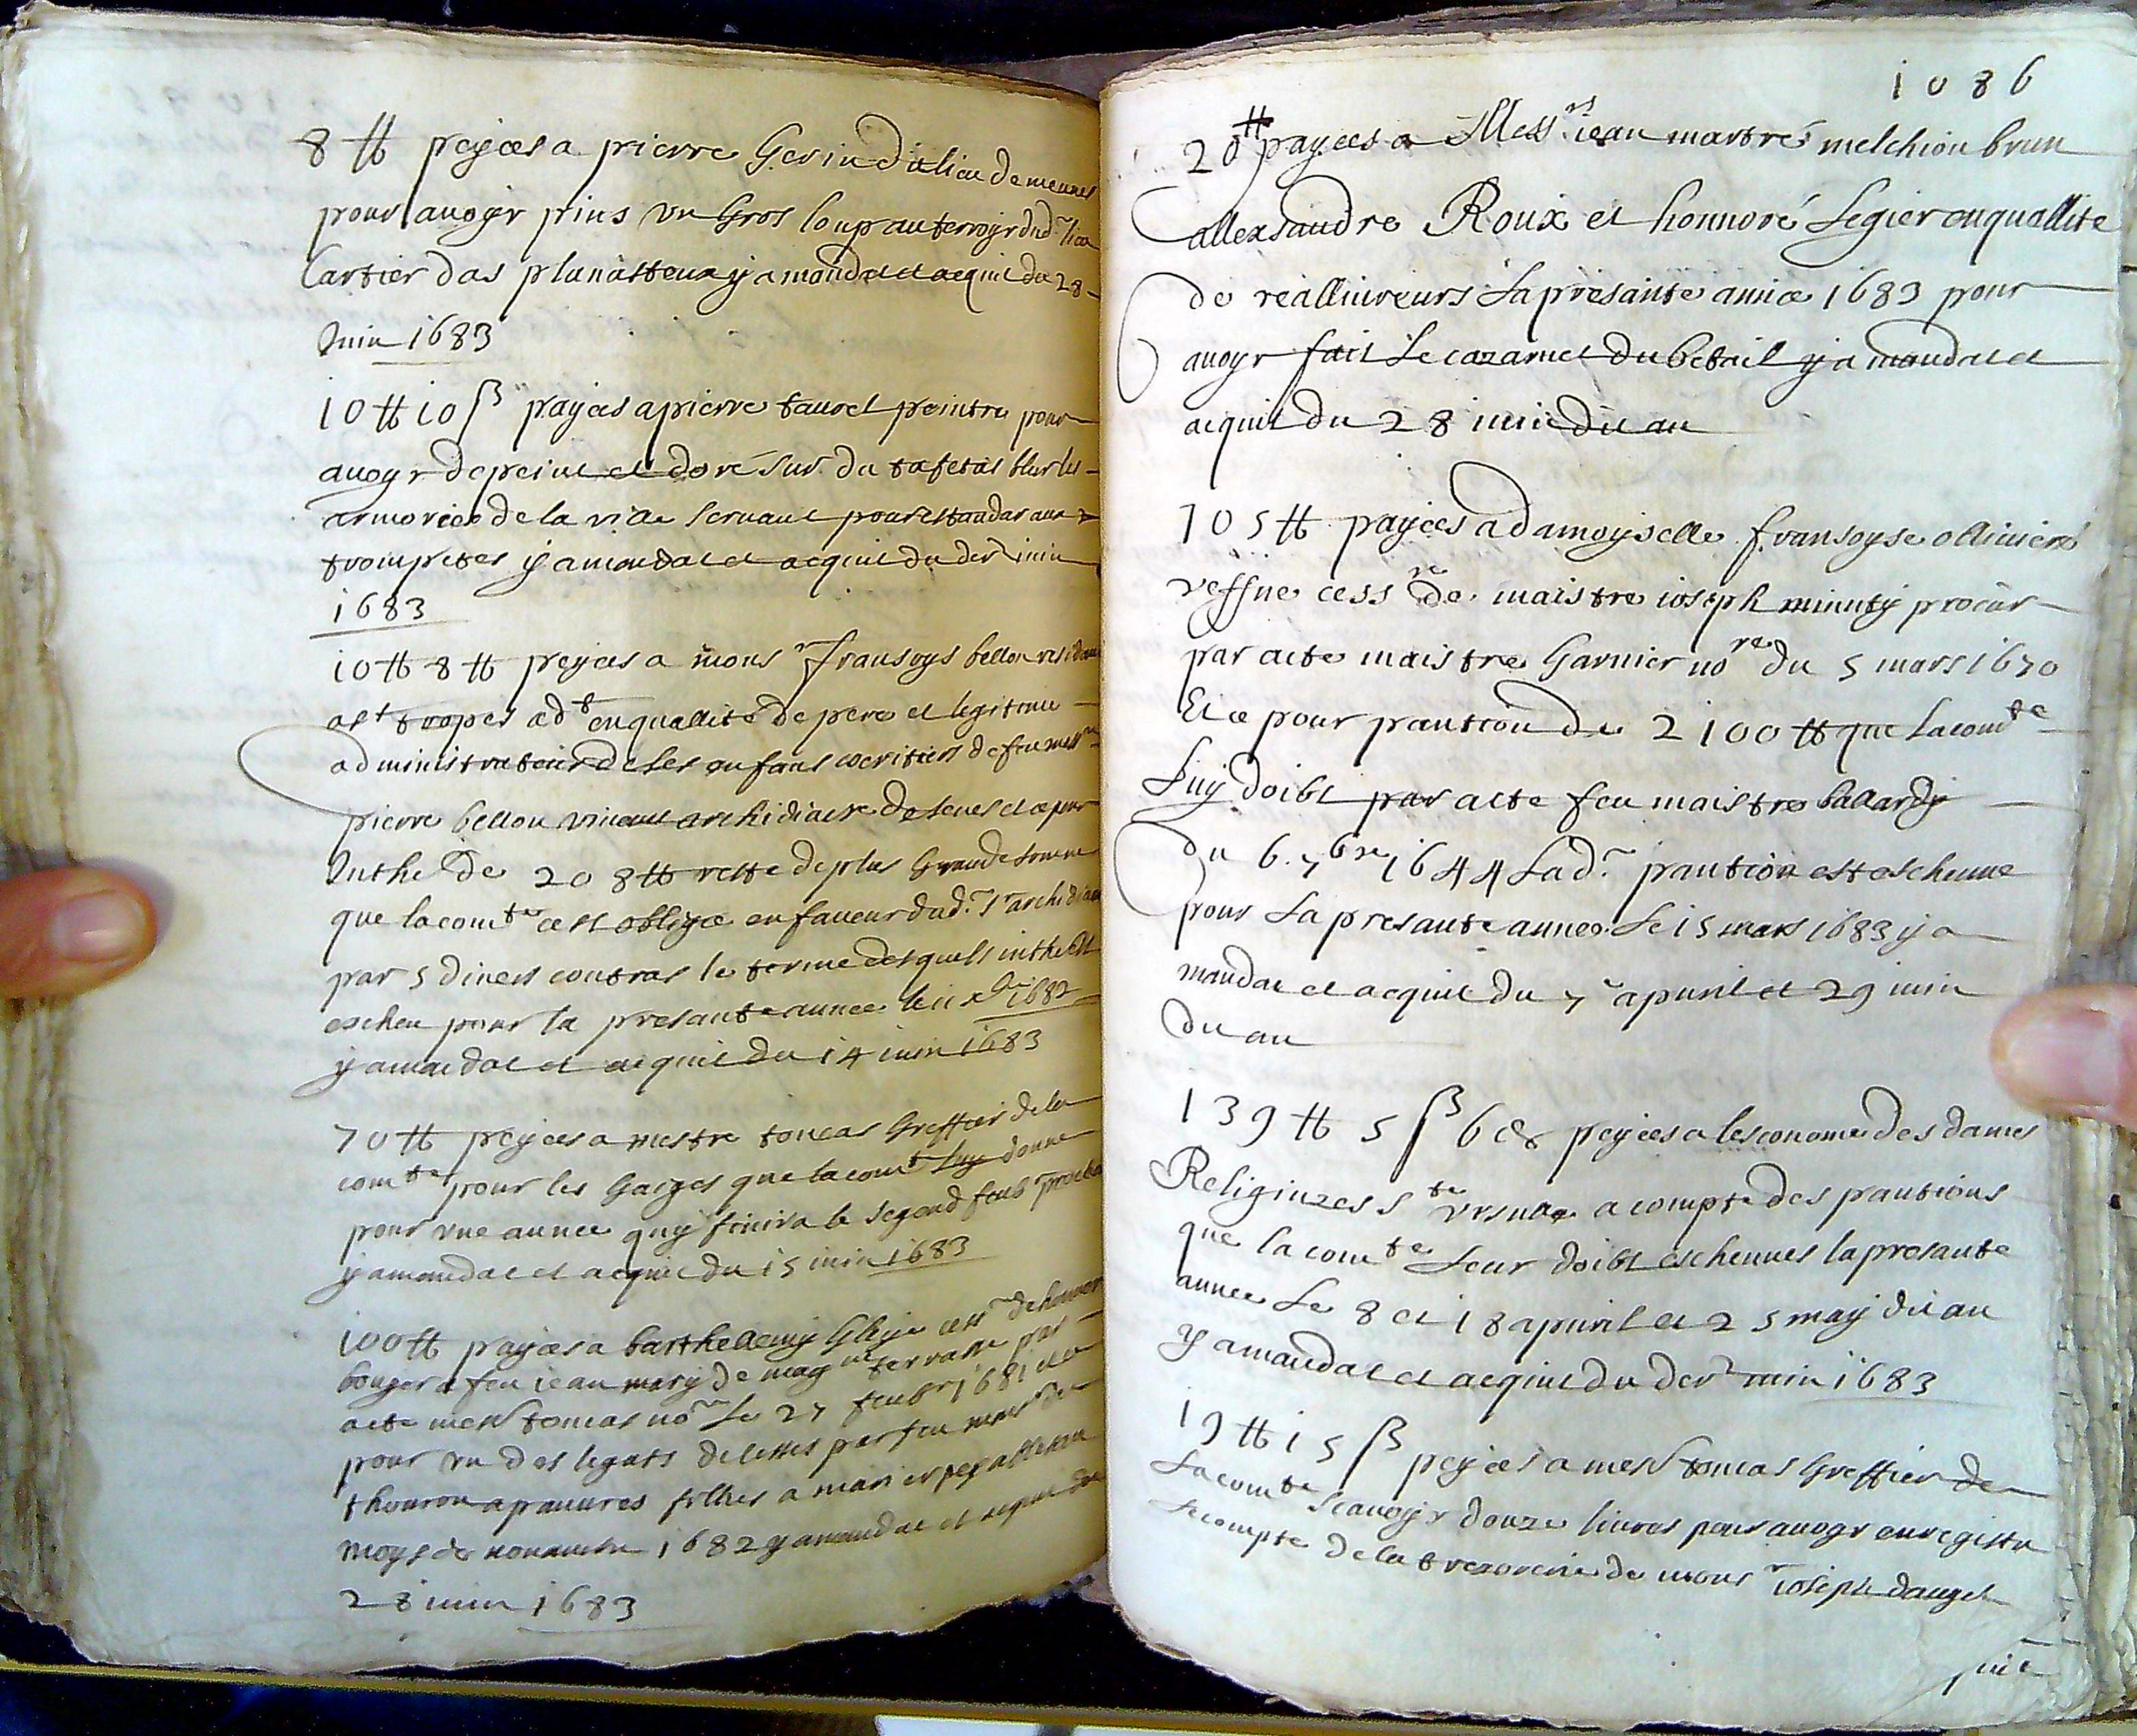 8 ₶ payees a pierre Gerin du lieu de meunes
pour auoyr prins vn Gros loup au terroyr dud. lieu
Cartier das planastteux y a mandat et acquit du 28
Juin 1683
10 ₶ 10 ß payees a pierre taurel peintre pour
auoyr depeint et doré sur du tafetas bleu les
armories de la ville seruant pour estandar aux
trompetes y a mandat et acquit du der juin
1683
10 ₶ 8 ₶ payees a mons.r fransoys bellon residant
a st tropes ad.t en quallité de pere et legitime
administrateur de ses enfans coeritiers de feu mess.re
pierre bellon viuant archidiacre de senes et ce pour
Inthe.t de 208 ₶ reste de plus Grande somme
que la com.te cest obligée en faueur dud. s.r archidiacre
par 5 diuers contras le terme desquels inthe.t est
escheu pour la presante annee le 1682
y a mandat et acquit du 14 juin 1683
70 ₶ payees a mestre toucas Greffier de la
com.te pour les Gaiges que la com.te luy donne
pour vne annee quy finira le segond feub prochain
y a mandat et acquit du 15 juin 1683
100 ₶ payees a barthellemy Gleye cess.re de honnor
bouyer a feu jean mary de mag.ne terrasse par
acte mest toucas no.re le 27 feubr 1681 et ce
pour vn des legats delessés par feu mons.r de
thouron a pauures filles a marier payable au
moys de nouambre 1682 y a mandat et acquit du
28 juin 1683
1086
20 ₶ payees a Mess.rs jean martre melchion brun
allexsandre Roux et honnoré Legier en quallite
de reallivreurs La presante annee 1683 pour
auoyr fait Le cazarnet du betail y a mandat et
acquit du 28 juin du an
105 ₶ payees a damoyselle fransoyse olliuiere
veffue cess.re de maistre joseph minuty procur
par acte maistre Garnier no.re du 5 mars 1670
Et ce pour pantion de 2100 ₶ que La com.te
Luy doibt par acte feu maistre ballardy
du 6. 7bre 1644 Lad. pantion est escheue
pour La presante annee Le 15 mars 1683 y a
mandat et acquit du 7 apuril et 29 juin
du an
139 ₶ 5 ß 6 d payees a lesconome des dames
Religiuzes s.te vrsulle a compte des pantions
que la com.te Leur doibt escheues la presante
annee Le 8 et 18 apuril et 25 may du an
y a mandat et acquit du der juin 1683
19 ₶ 15 ß payees a mest toucas Greffier de
La com.te scauoyr douze liures pour auoyr enregistre
Le compte de la trezorerie de mons.r joseph dauget